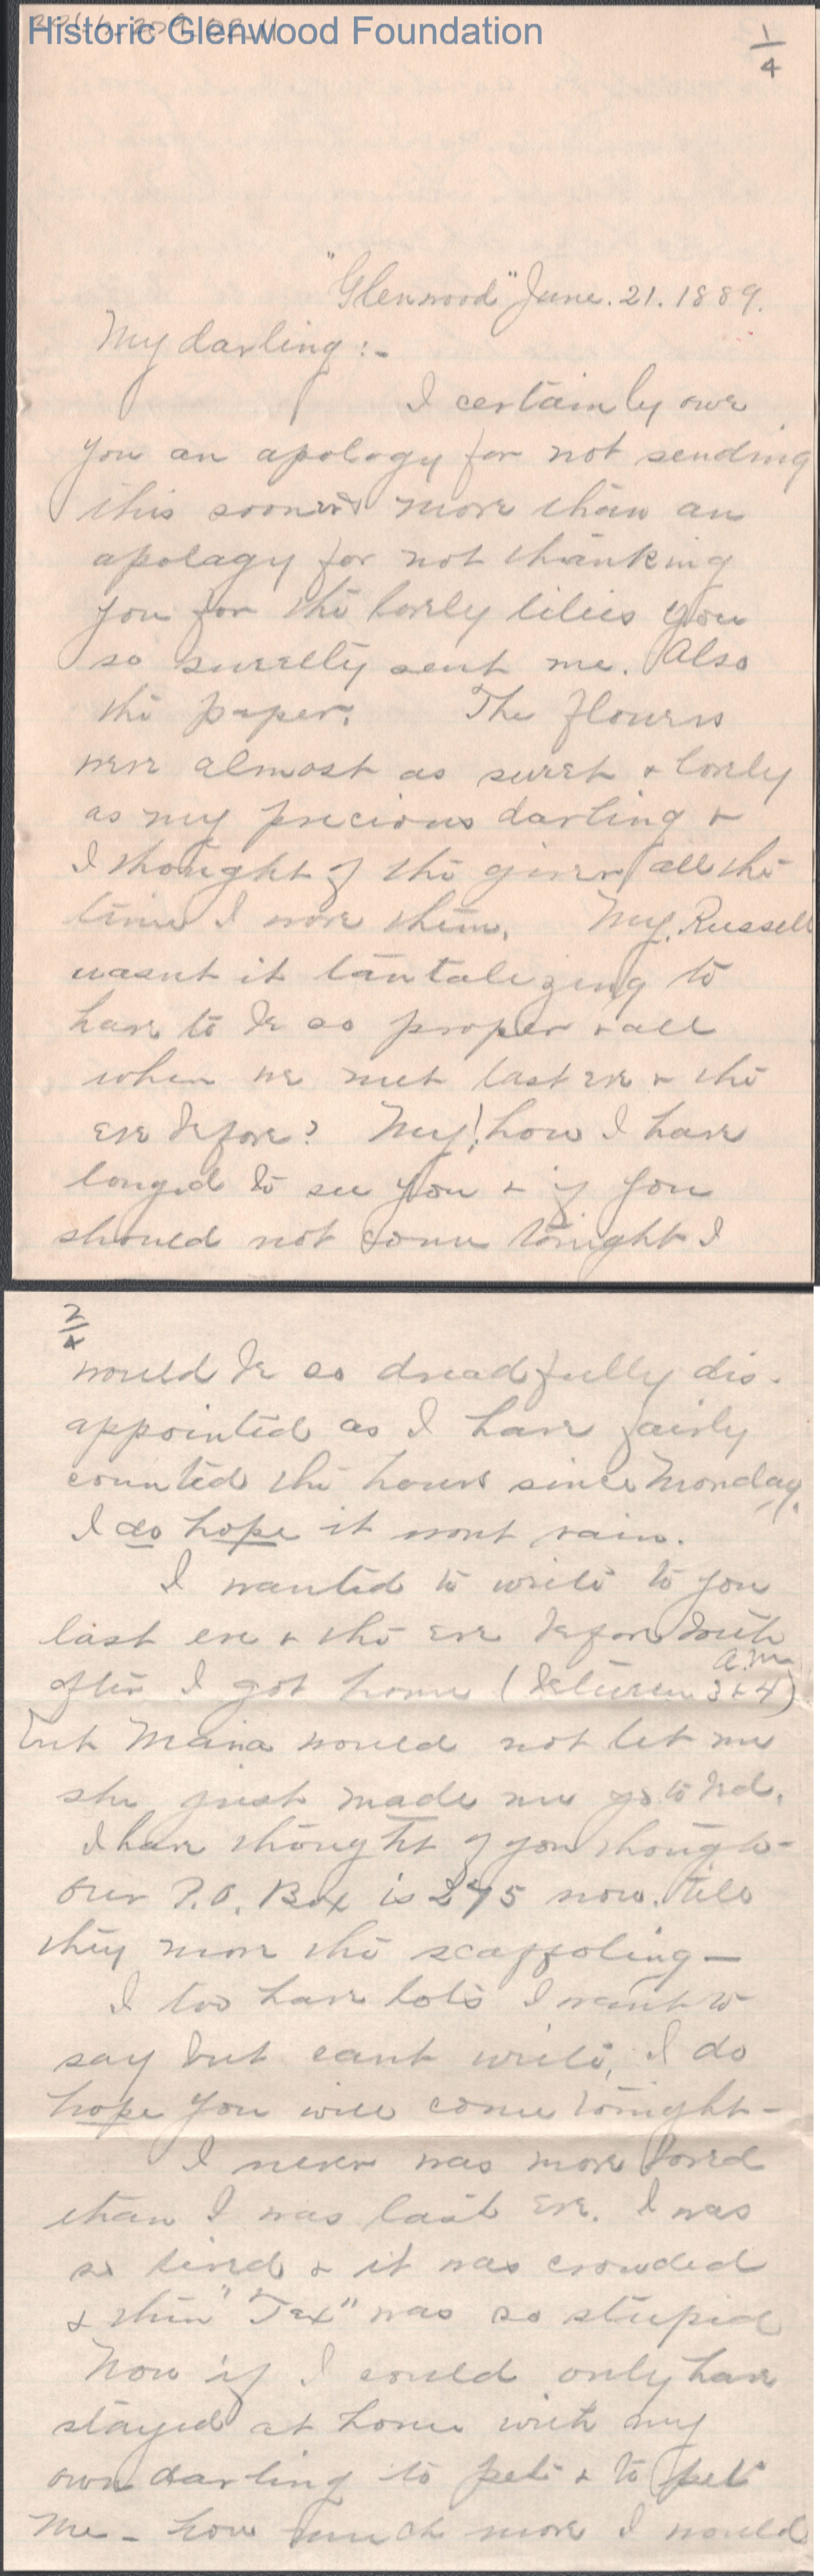 Historic Glenwood Foundation
1/4
"Glenwood" June. 21. 1889.
My darling :-
I certainly owe
you an apology for not sending
this sooner & more than an
apology for not thanking
you for the lovely lilies you
so sweetly sent me. Also
the paper. The flowers
were almost as sweet & lovely
as my precious darling &
I thought of the giver all the
time I wore them. My, Russell
wasnt it tantalizing to
have to be so proper & all
when we met last eve & the
eve before? My! how I have
longed to see you & if you
should not come tonight I
2/4
would be so dreadfully dis-
appointed as I have fairly
counted the hours since Monday.
I do hope it wont rain.
I wanted to write to you
last eve & the eve before both
a.m.
after I got home (between 3 & 4)
but Mama would not let me
she just made me go to bed.
I have thought of you though -
Our P.O. Box is 275 now. till
they move the scaffoling —
I too have lots I want to
say but cant write, I do
hope you will come tonight -
I never was more bored
than I was last eve. I was
so tired & it was crowded
& then "Tex" was so stupid
Now if I could only have
stayed at home with my
own darling to pet & to pet
me - how much more I would